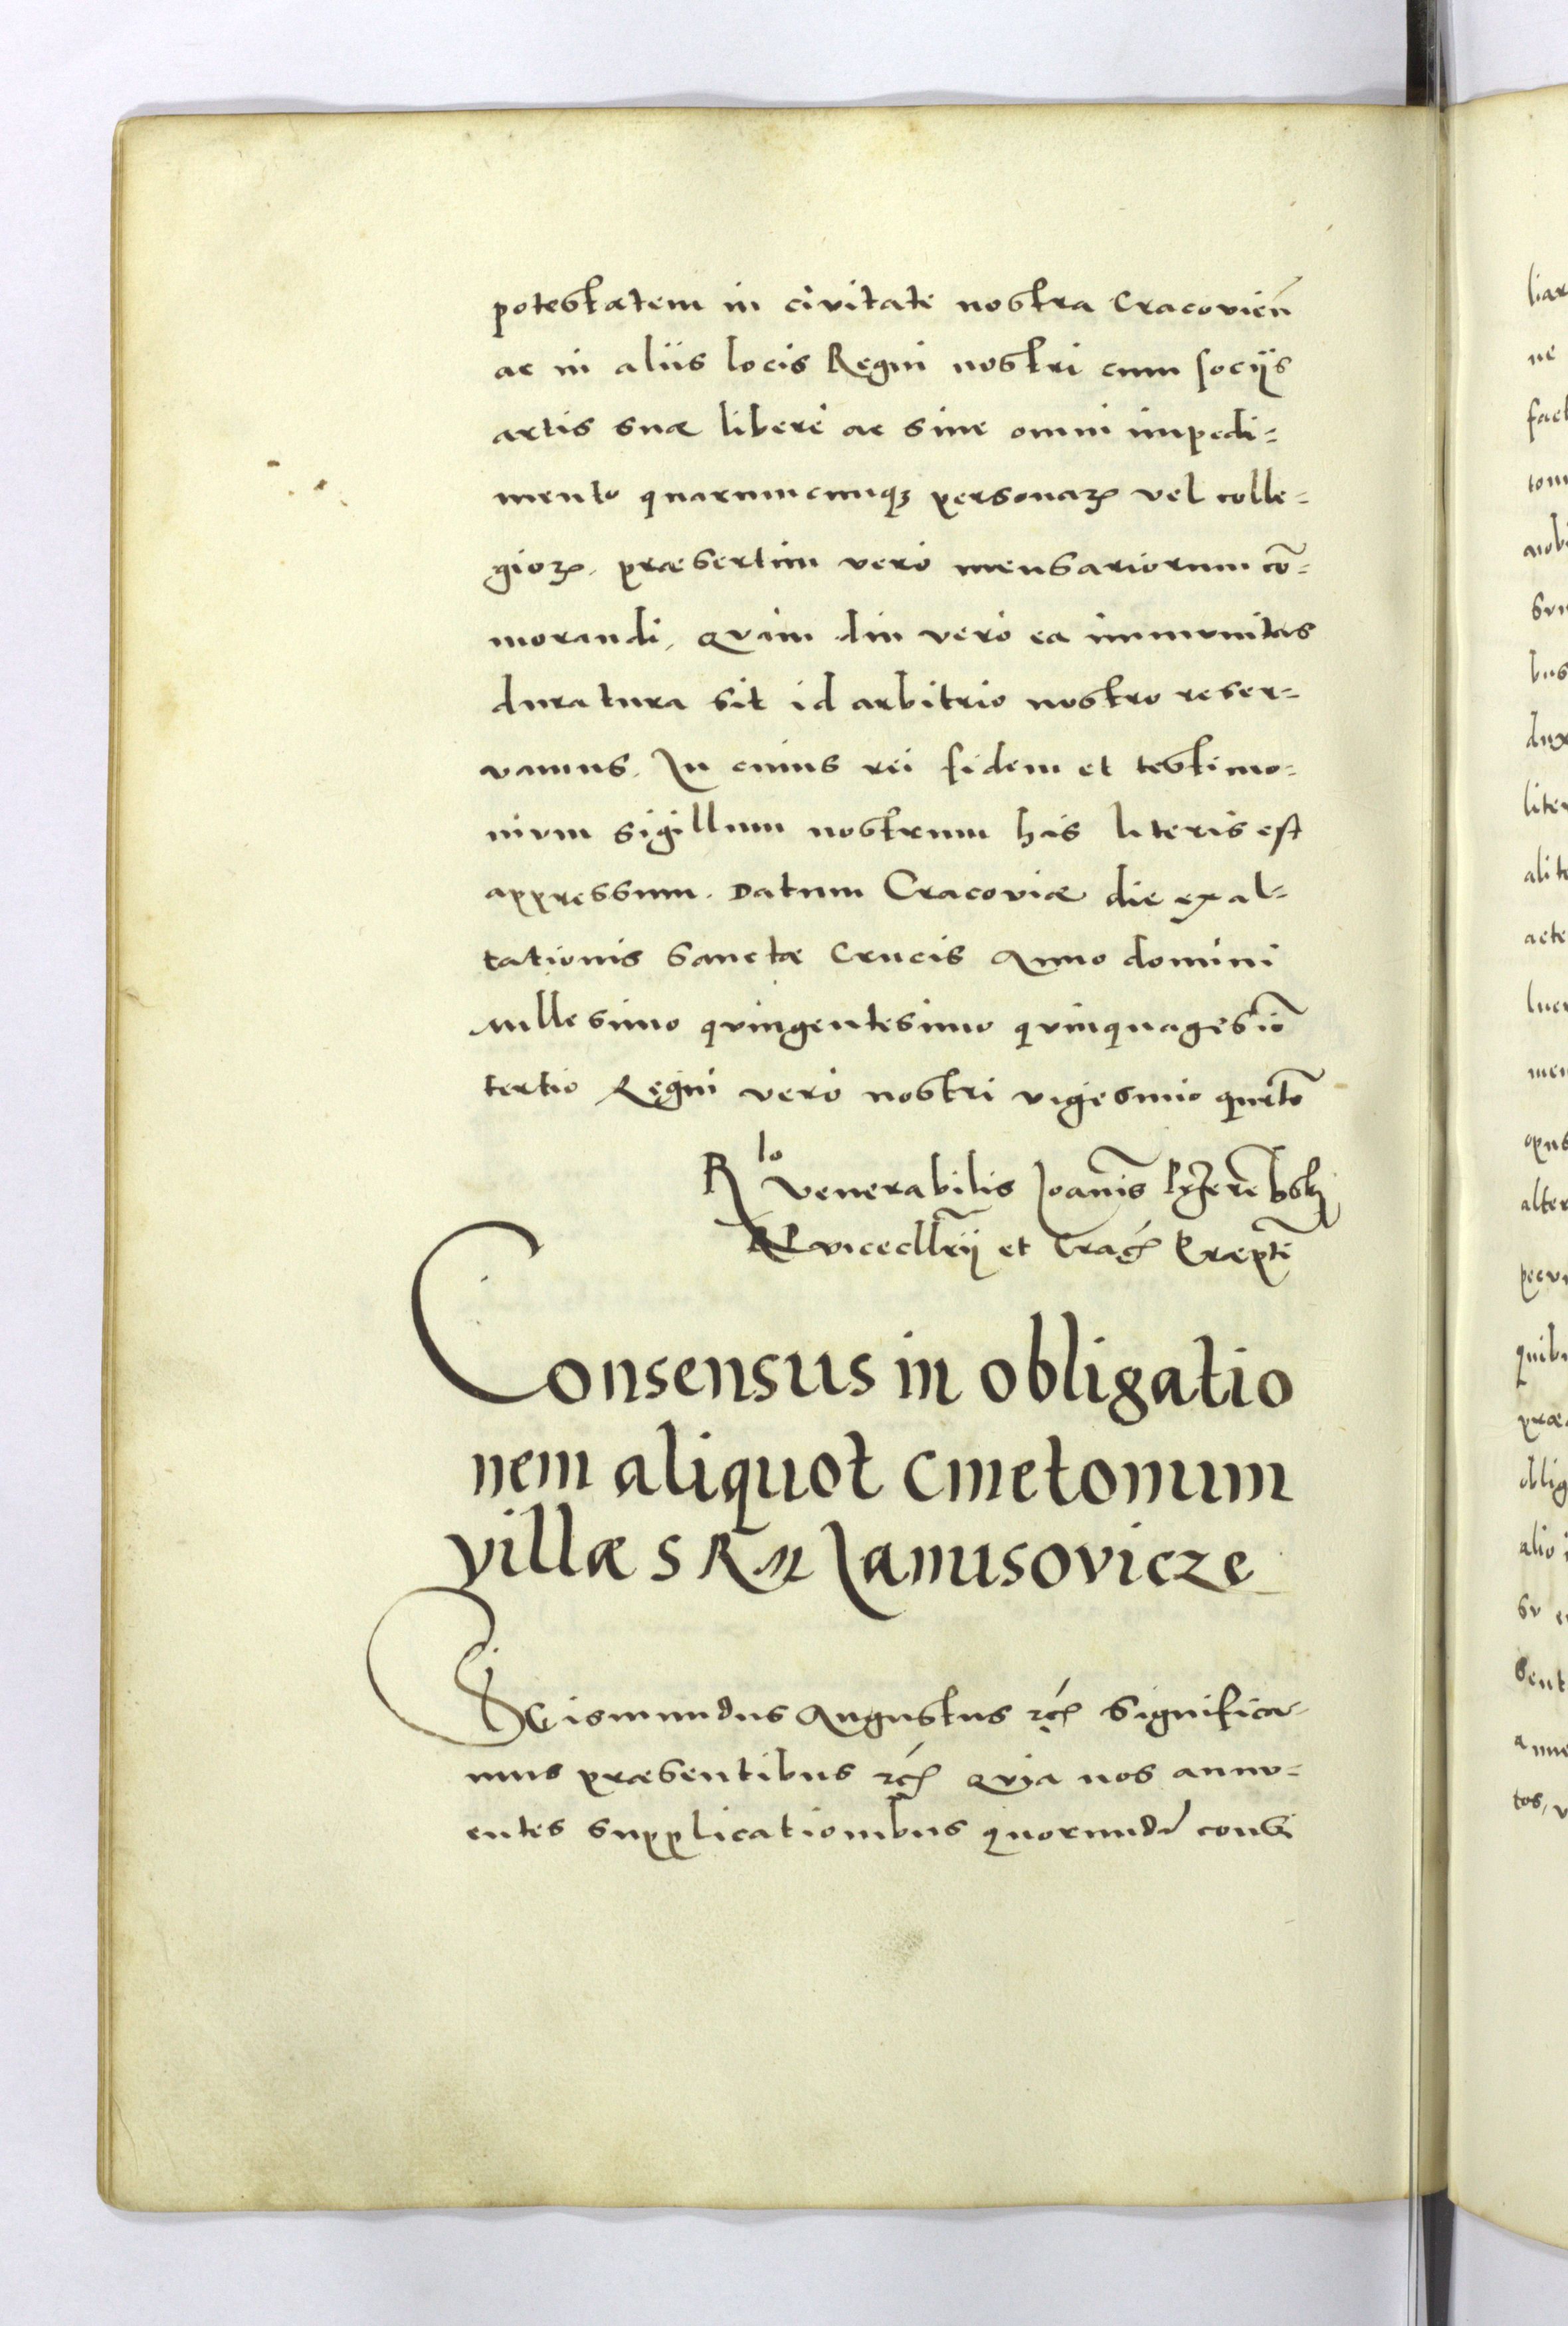 potestatem in civitate nostra Cracovien̄
ac in aliis locis Regni nostri cum sociis
artis suæ libere ac sine omni impedi=
mento quarumcumqꝫ personaꝝ vel colle=
gioꝝ. præsertim vero mensariorum cō=
morandi, Quam diu vero ea immunitas
duratura sit id arbitrio nostro reser=
vamus. In cuius rei fidem et testimo=
nivm sigillum nostrum his literis est
appressum. Datum Cracoviæ die exal=
tationis Sanctæ Crucis Anno domini
Millesimo qvingentesimo qvinquagesīo
tertio Regni vero nostri vigesimo qu̅rto
Rlo venerabilis Joan̄is Przerēbskj
R P vicecll̄rij et Crac̄ Præptī
Consensus in obligatio
nem aliquot cmetonum
villæ S R M Janusovicze
SGismundus Augustus ꝛc̄ Significa=
mus præsentibus ꝛc̄ Qvia nos annu=
entes supplicationibus quorundā consi
liar
ne